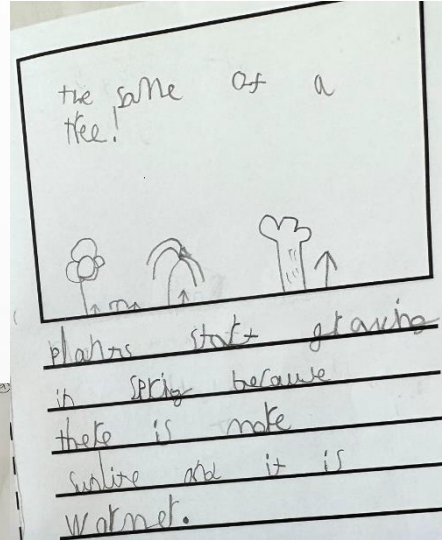 the same of a
tree!
plants start growing
in spring because
there is more
sunlite and it is
warmer.